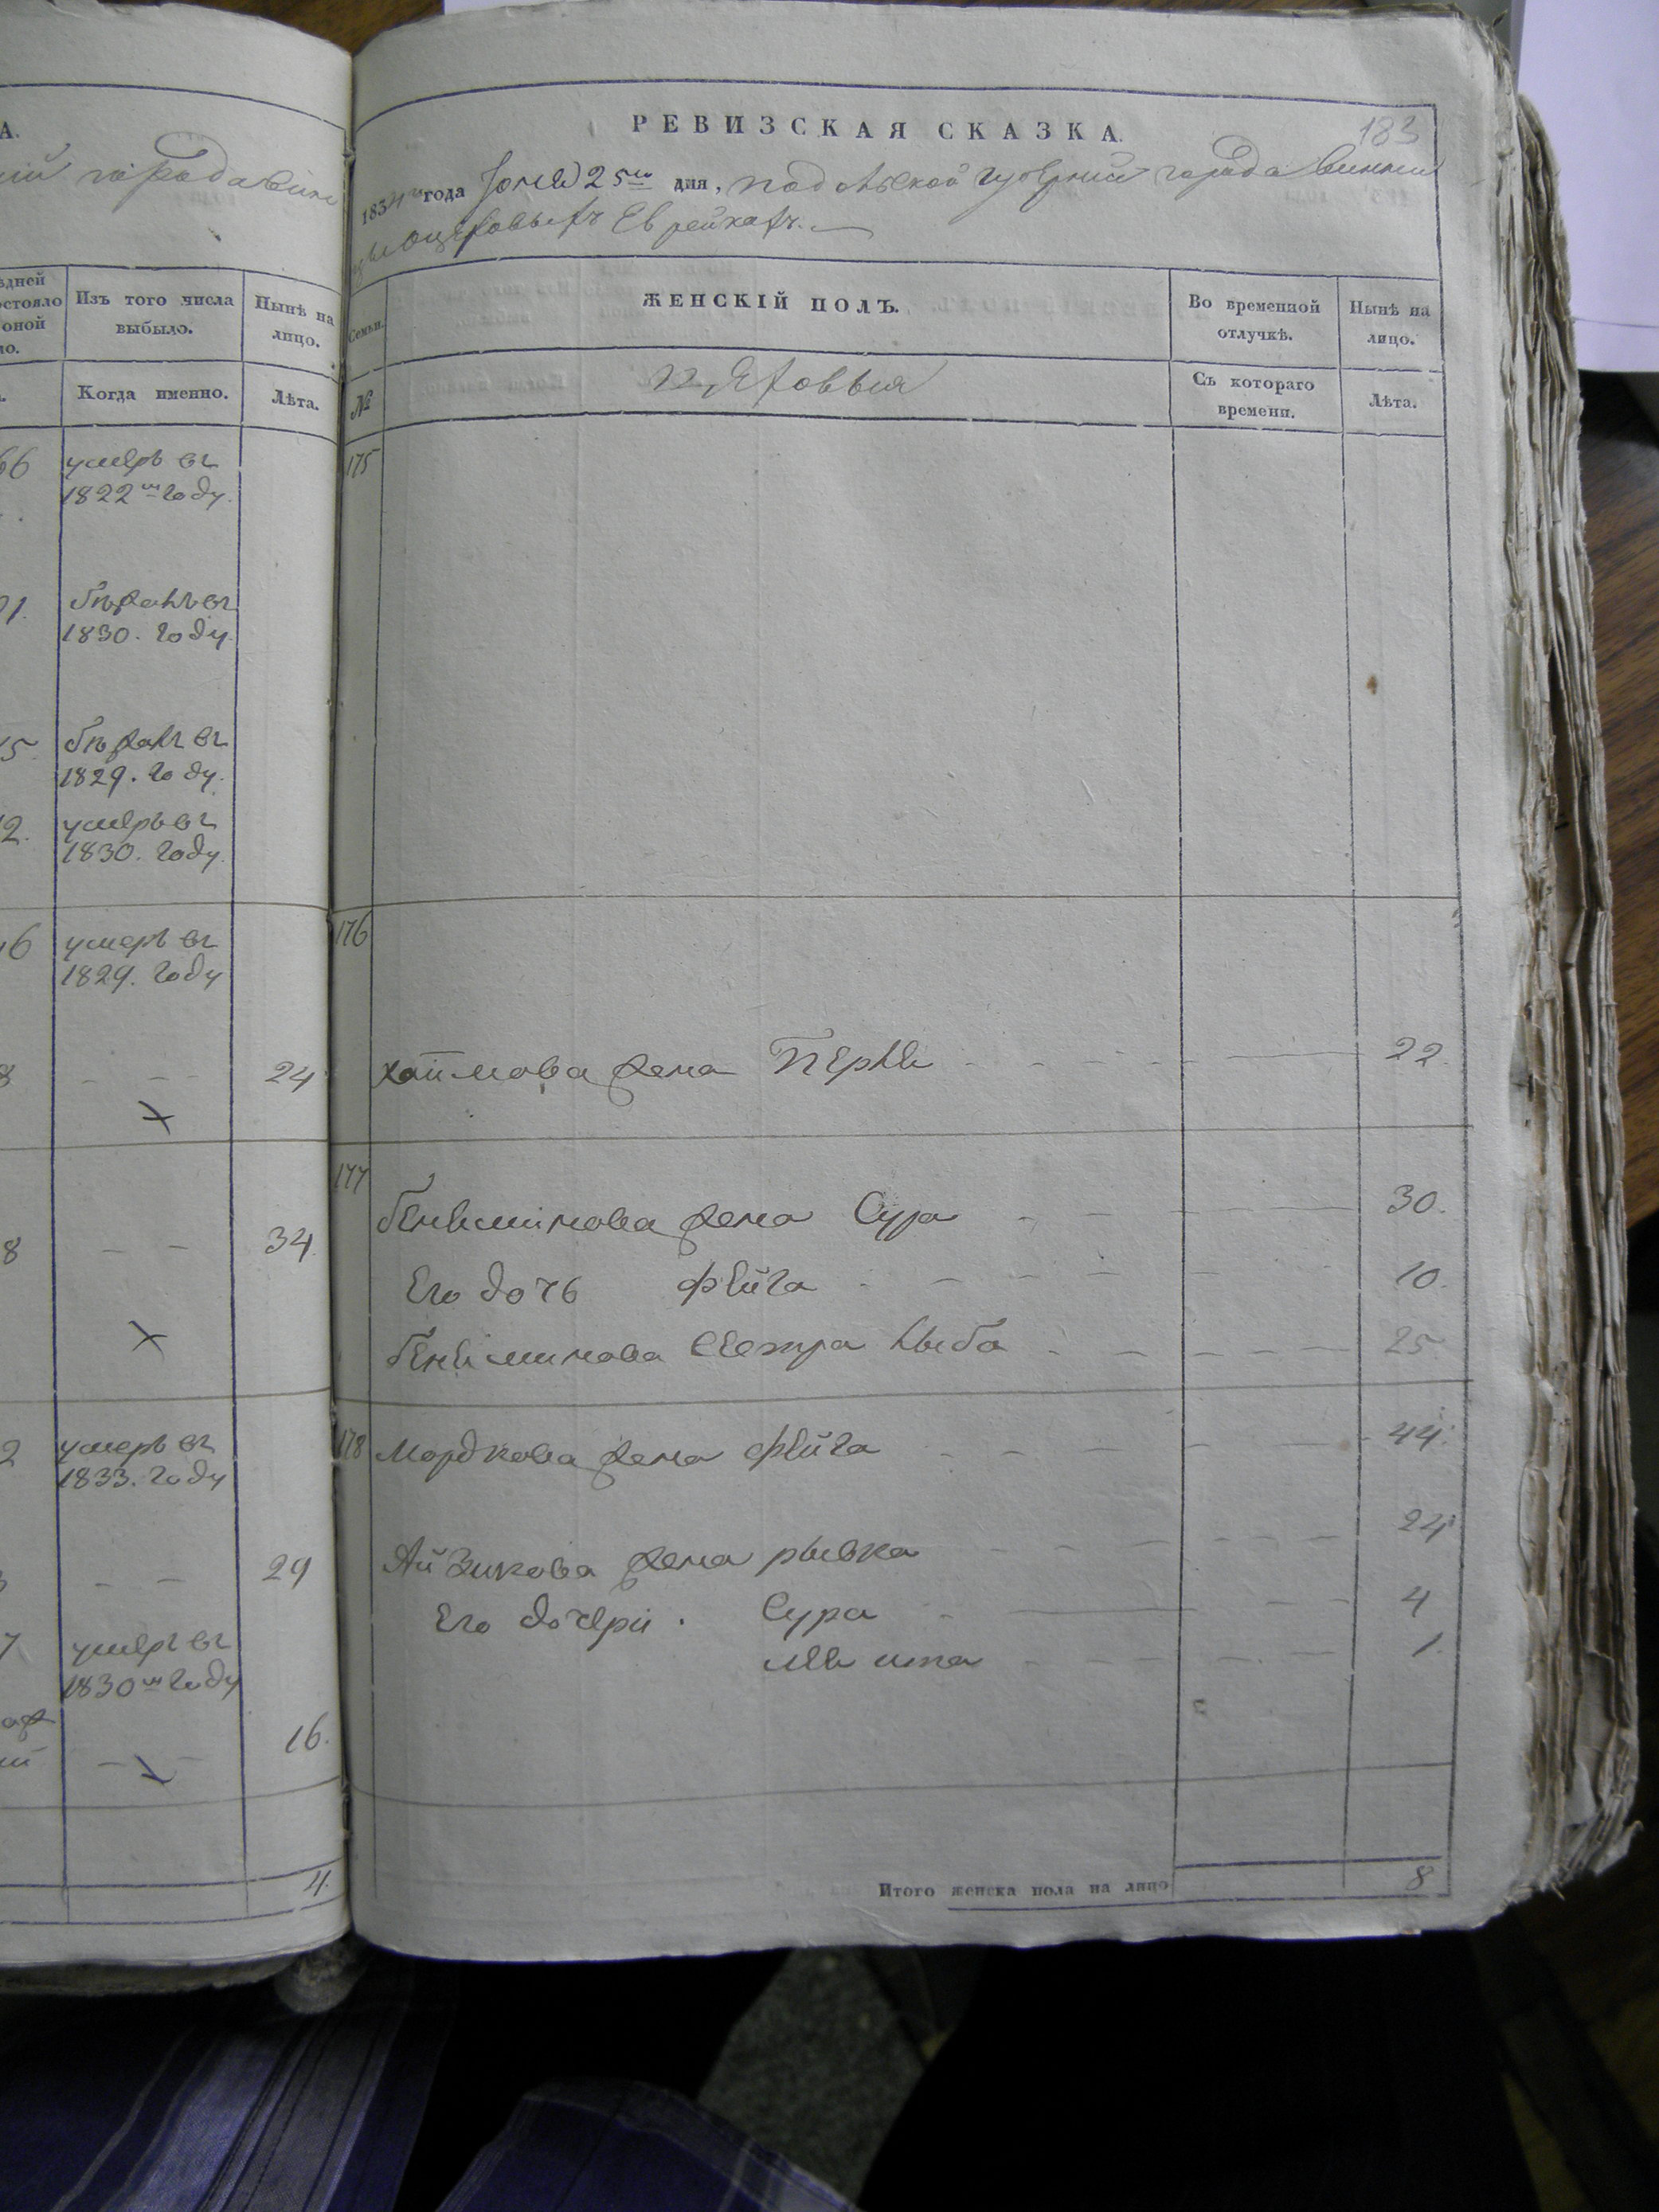 А.
ій города Вин
здней
остояло
оной
ло.
Изъ того числа
выбыло.
Нынѣ на
лицо.
Когда именно.
Лѣта.
66 умеръ въ
1822 го году.
1. бѣжалъ въ
1830. году.
5 бѣжалъ въ
1829. году.
2. умеръ въ
1830. году.
6 умеръ въ
1829. году
8 — — 24
8 — — 34.
2 умеръ въ
1833. году
— — 29
7 умеръ въ
1830 го году
ій — — 16.
4.
183
РЕВИЗСКАЯ СКАЗКА.
1834 го года Іюня 25 го дня, Подольской губерніи города Винни
цы о цеховыхъ Еврейкахъ. —
Семьи.
ЖЕНСКІЙ ПОЛЪ.
Во временной
отлучкѣ.
Нынѣ на
лицо.
№
Цеховыя
Съ котораго
времени.
Лѣта.
175
176
Хаимова жена Перля - - - - 22.
177
Беніаминова жена Сура - - - - 30.
Его дочь Фейга - - - - 10.
Беніаминова сестра Цыба - - - - 25.
178 Мордкова жена Фейга - - - - 44.
Айзикова жена Рывка - - - - 24
Его дочери. Сура - - - 4
1.
Итого женска пола на лицо 8